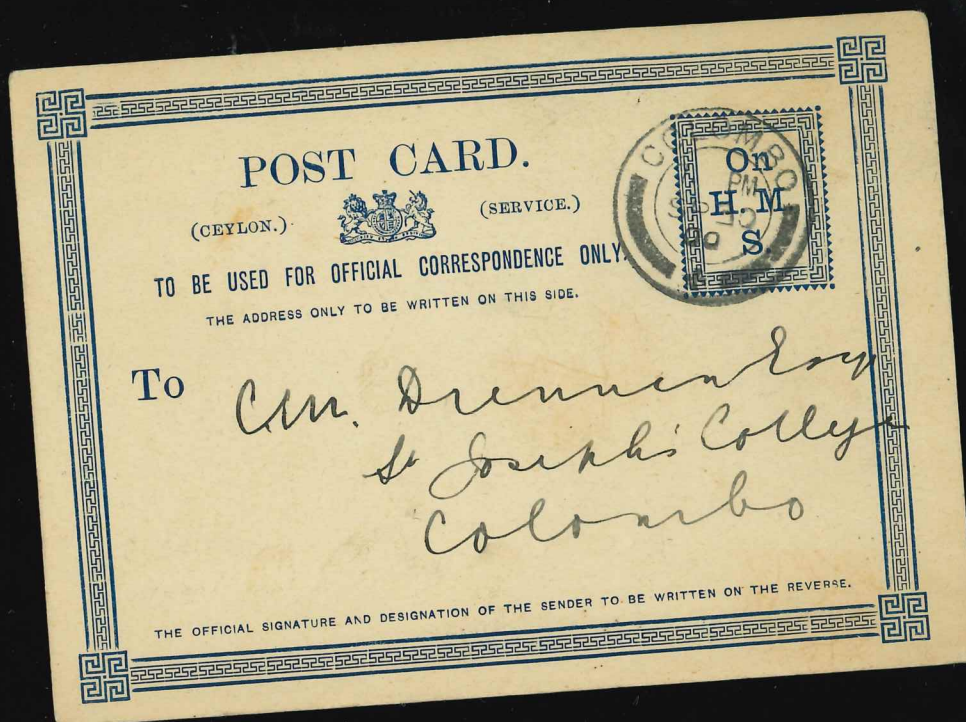 POST CARD.
(CEYLON.) (SERVICE.)
TO BE USED FOR OFFICIAL CORRESPONDENCE ONLY.
THE ADDRESS ONLY TO BE WRITTEN ON THIS SIDE.
COLOMBO
PM
On
H. M.
S.
To
C.M. Drennen Esq
St Joseph's College
Colombo
THE OFFICIAL SIGNATURE AND DESIGNATION OF THE SENDER TO BE WRITTEN ON THE REVERSE.